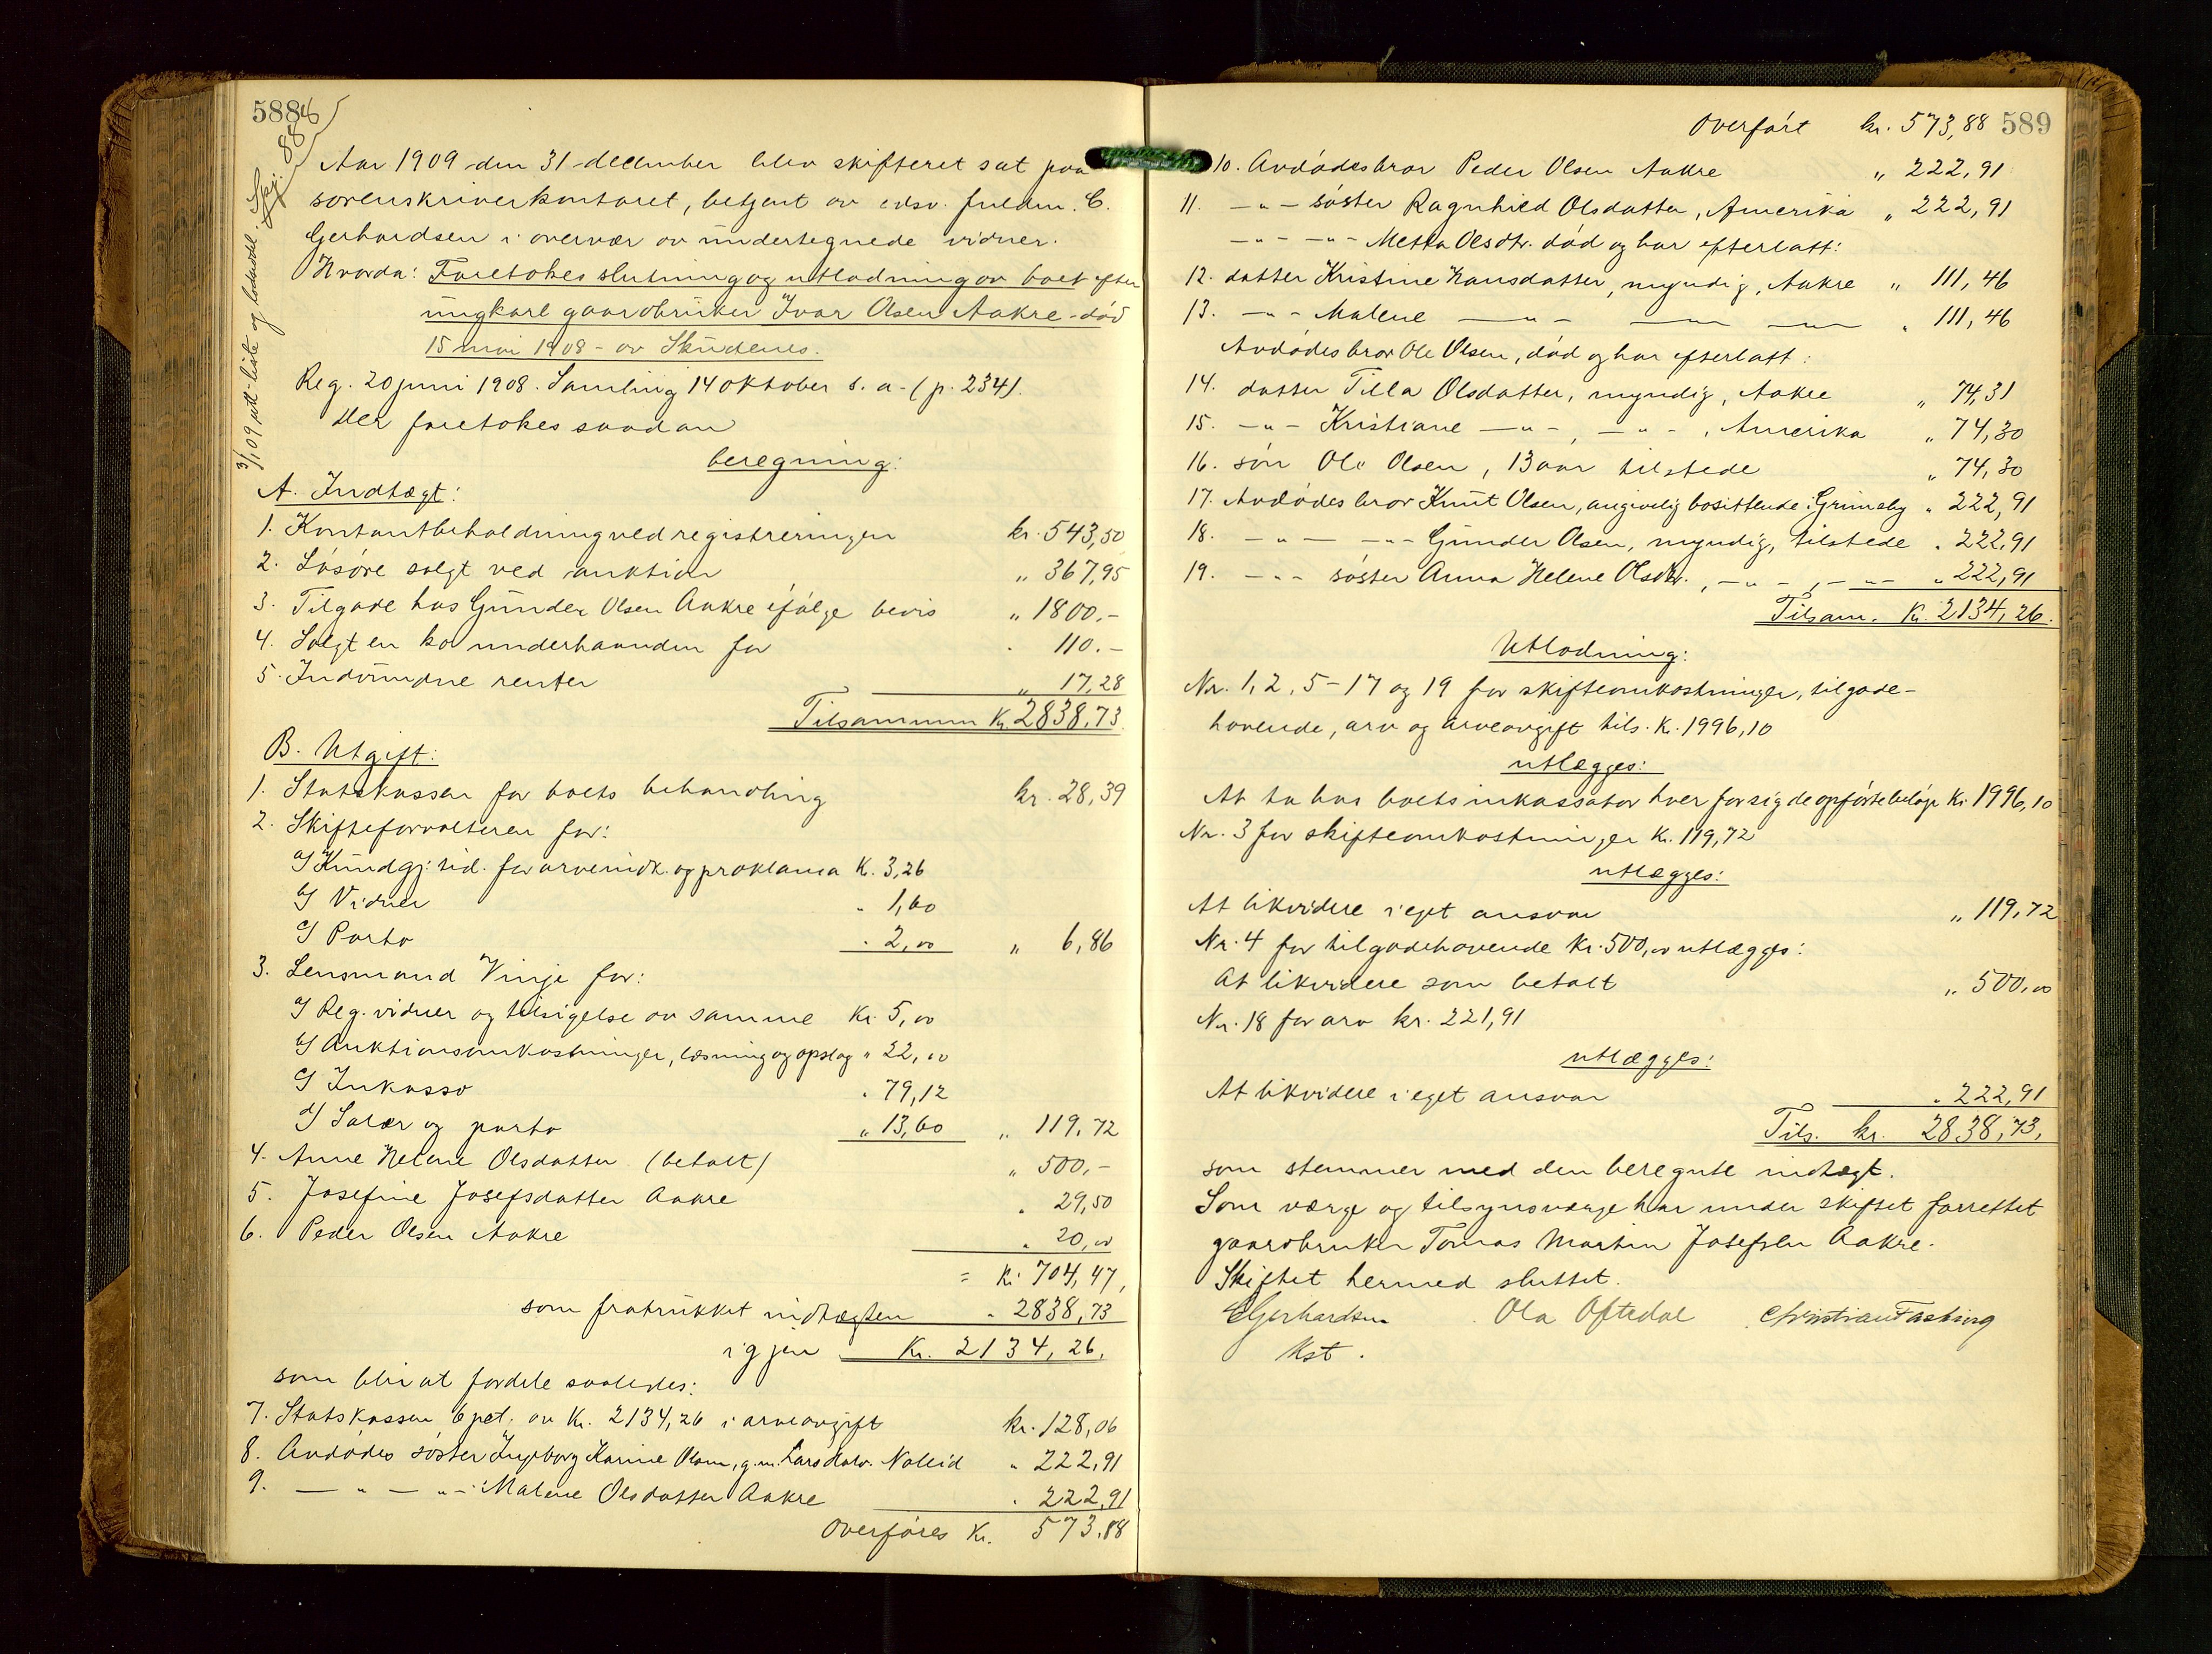 588
Aar 1909 den 31 december blev skifteret sat paa
sorenskriverkontoret, betjent av edsv. fuldm. C.
Gerhardsen i overvær av undertegnede vidner.
Hvorda: Foretokes slutning og utlodning av boet efter
ungkarl gaardbruker Ivar Olsen Aakre - død
15 mai 1908 - av Skudenes.
Reg. 20 juni 1908. Samling 14 oktober s. a. (p. 234).
Der foretokes saadan
beregning:
3/1 09 utl. liste og
A. Indtægt:
1. Kontantbeholdning ved registreringen kr. 543,50
2. Løsøre solgt ved auktion " 367,95
3. Tilgode hos Gunder Olsen Aakre ifølge bevis " 1800.-
4. Solgt en ko underhaanden for " 110.-
5. Indvundne renter " 17,28
Tilsammen Kr. 2838,73.
B. Utgift:
1. Statskassen for boets behandling kr. 28,39
2. Skifteforvalteren for:
a/ Kundgj. tid. for arveindk. og proklama K. 3,26
b/ Vidner " 1,60
c/ Porto " 2,00 " 6,86
3. Lensmand Vinje for:
a/ Reg. vidner og tilsigelse av samme Kr. 5,00
b/ Auktionsomkostninger, læsning og opslag " 22,00
c/ Inkasso " 79,12
d/ Salær og porto " 13,60 " 119,72
4. Anne Helene Olsdatter (betalt) " 500,-
5. Josefine Josefsdatter Aakre " 29,50
6. Peder Olsen Aakre " 20,00
= Kr. 704,47,
som fratrukket indtægten " 2838,73
igjen Kr. 2134,26.
som blir at fordele saaledes:
7. Statskassen 6 pct. av Kr. 2134,26 i arveavgift kr. 128,06
8. Avdødes søster Ingeborg Karine Olsen, g. m. Lars Nolleid " 222,91
9. — " — " - Malene Olsdatter Aakre " 222,91
Overføres Kr. 573,88
Overført kr. 573,88 589
10. Avdødes bror Peder Olsen Aakre " 222,91
11. - " - søster Ragnhild Olsdatter, Amerika " 222,91
- " - - " - Metta Olsdtr. død og har efterlatt:
12. datter Kristine Hansdatter, myndig, Aakre " 111,46
13. - " - Malene — " — — " — — " — " 111,46
Avdødes bror Ole Olsen, død og har efterlatt:
14. datter Tilla Olsdatter, myndig, Aakre " 74,31
15. - " - Kristiane — " - , - " - , Amerika " 74,30
16. søn Ole Olsen, 13 aar tilstede " 74,30
17. Avdødes bror Knut Olsen, angivelig bosittende i Grimsby " 222,91
18. - " - - " - Gunder Olsen, myndig, tilstede " 222,91
19. - " - søster Anna Helene Olsdtr., - " - , - " - " 222,91
Tilsam. Kr. 2134,26.
Utlodning:
Nr. 1, 2, 5-17 og 19 for skifteomkostninger, tilgode-
havende, arv og arveavgift tils. K. 1996,10
utlægges:
At ta hos boets inkassator hver for sig de opførte beløp Kr. 1996,10
Nr. 3 for skifteomkostninger K. 119,72
utlægges:
At likvidere i eget ansvar " 119,72
Nr. 4 for tilgodehavende Kr. 500,00 utlægges:
At likvidere som betalt " 500,00
Nr. 18 for arv kr. 221,91
utlægges:
At likvidere i eget ansvar " 222,91
Tils. kr. 2838,73,
som stemmer med den beregnte indtægt.
Som værge og tilsynsværge har under skiftet forrettet
gaardbruker Tomas Martin Josefsen Aakre.
Skiftet hermed sluttet.
CGerhardsen Ola Oftedal Christian Fasting
Kst.